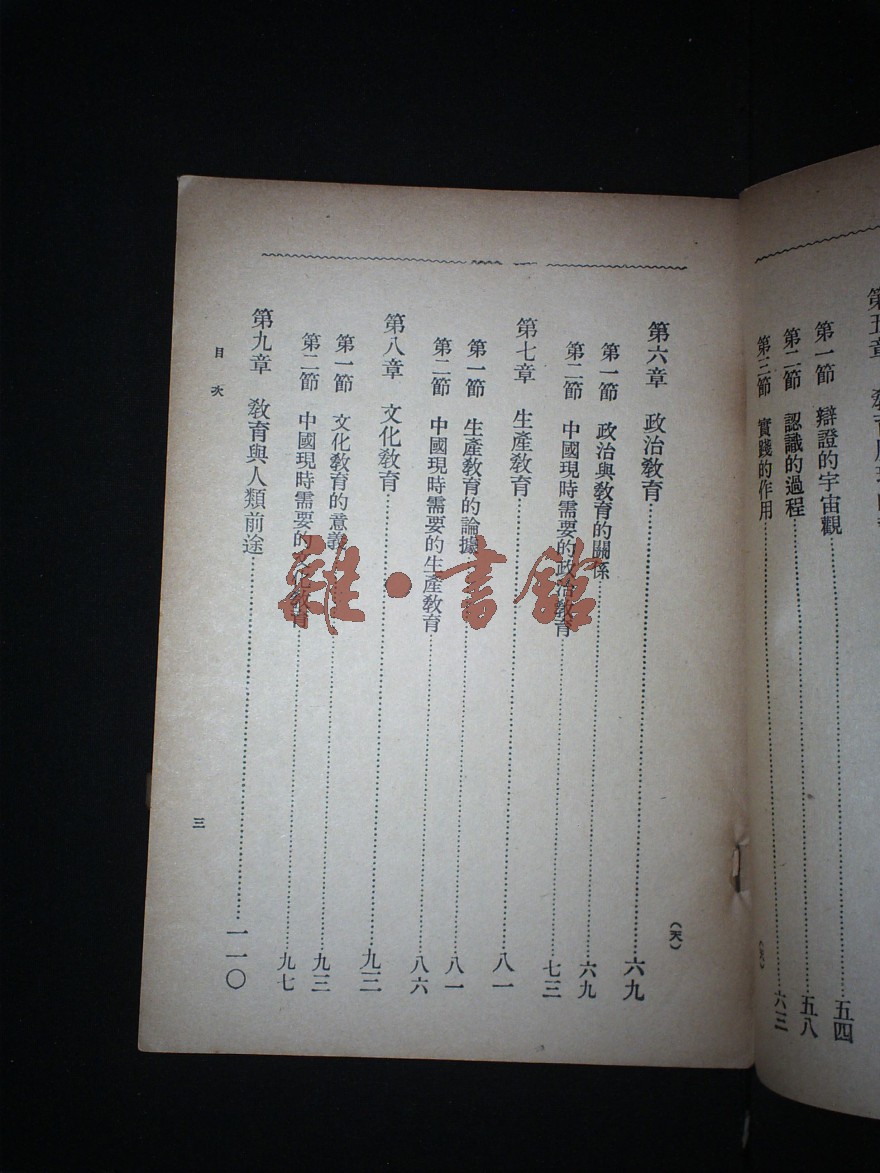 第五章
第一節 辯證的宇宙觀 五四
第二節 認識的過程 五八
第三節 實踐的作用 六三
(天)
第六章 政治教育 六九
第一節 政治與教育的關係 六九
第二節 中國現時需要的政治教育 七三
第七章 生產教育 八一
第一節 生產教育的論據 八一
第二節 中國現時需要的生產教育 八六
第八章 文化教育 九三
第一節 文化教育的意義 九三
第二節 中國現時需要的文化教育 九七
第九章 教育與人類前途 一一〇
目次
三
雜·書館